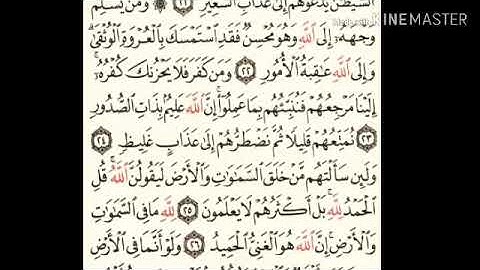 الشَّيْطَٰنُ يَدْعُوهُمْ إِلَىٰ عَذَابِ ٱلسَّعِيرِ ٢١ ۞ وَمَن يُسْلِمْ
وَجْهَهُۥٓ إِلَى ٱللَّهِ وَهُوَ مُحْسِنٌ فَقَدِ ٱسْتَمْسَكَ بِٱلْعُرْوَةِ ٱلْوُثْقَىٰۗ
وَإِلَى ٱللَّهِ عَٰقِبَةُ ٱلْأُمُورِ ٢٢ وَمَن كَفَرَ فَلَا يَحْزُنكَ كُفْرُهُۥٓۚ
إِلَيْنَا مَرْجِعُهُمْ فَنُنَبِّئُهُم بِمَا عَمِلُوٓا۟ۚ إِنَّ ٱللَّهَ عَلِيمٌۢ بِذَاتِ ٱلصُّدُورِ
٢٣ نُمَتِّعُهُمْ قَلِيلًا ثُمَّ نَضْطَرُّهُمْ إِلَىٰ عَذَابٍ غَلِيظٍ ٢٤
وَلَئِن سَأَلْتَهُم مَّنْ خَلَقَ ٱلسَّمَٰوَٰتِ وَٱلْأَرْضَ لَيَقُولُنَّ ٱللَّهُۚ قُلِ
ٱلْحَمْدُ لِلَّهِۚ بَلْ أَكْثَرُهُمْ لَا يَعْلَمُونَ ٢٥ لِلَّهِ مَا فِى ٱلسَّمَٰوَٰتِ
وَٱلْأَرْضِۚ إِنَّ ٱللَّهَ هُوَ ٱلْغَنِىُّ ٱلْحَمِيدُ ٢٦ وَلَوْ أَنَّمَا فِى ٱلْأَرْضِ
KINEMASTER